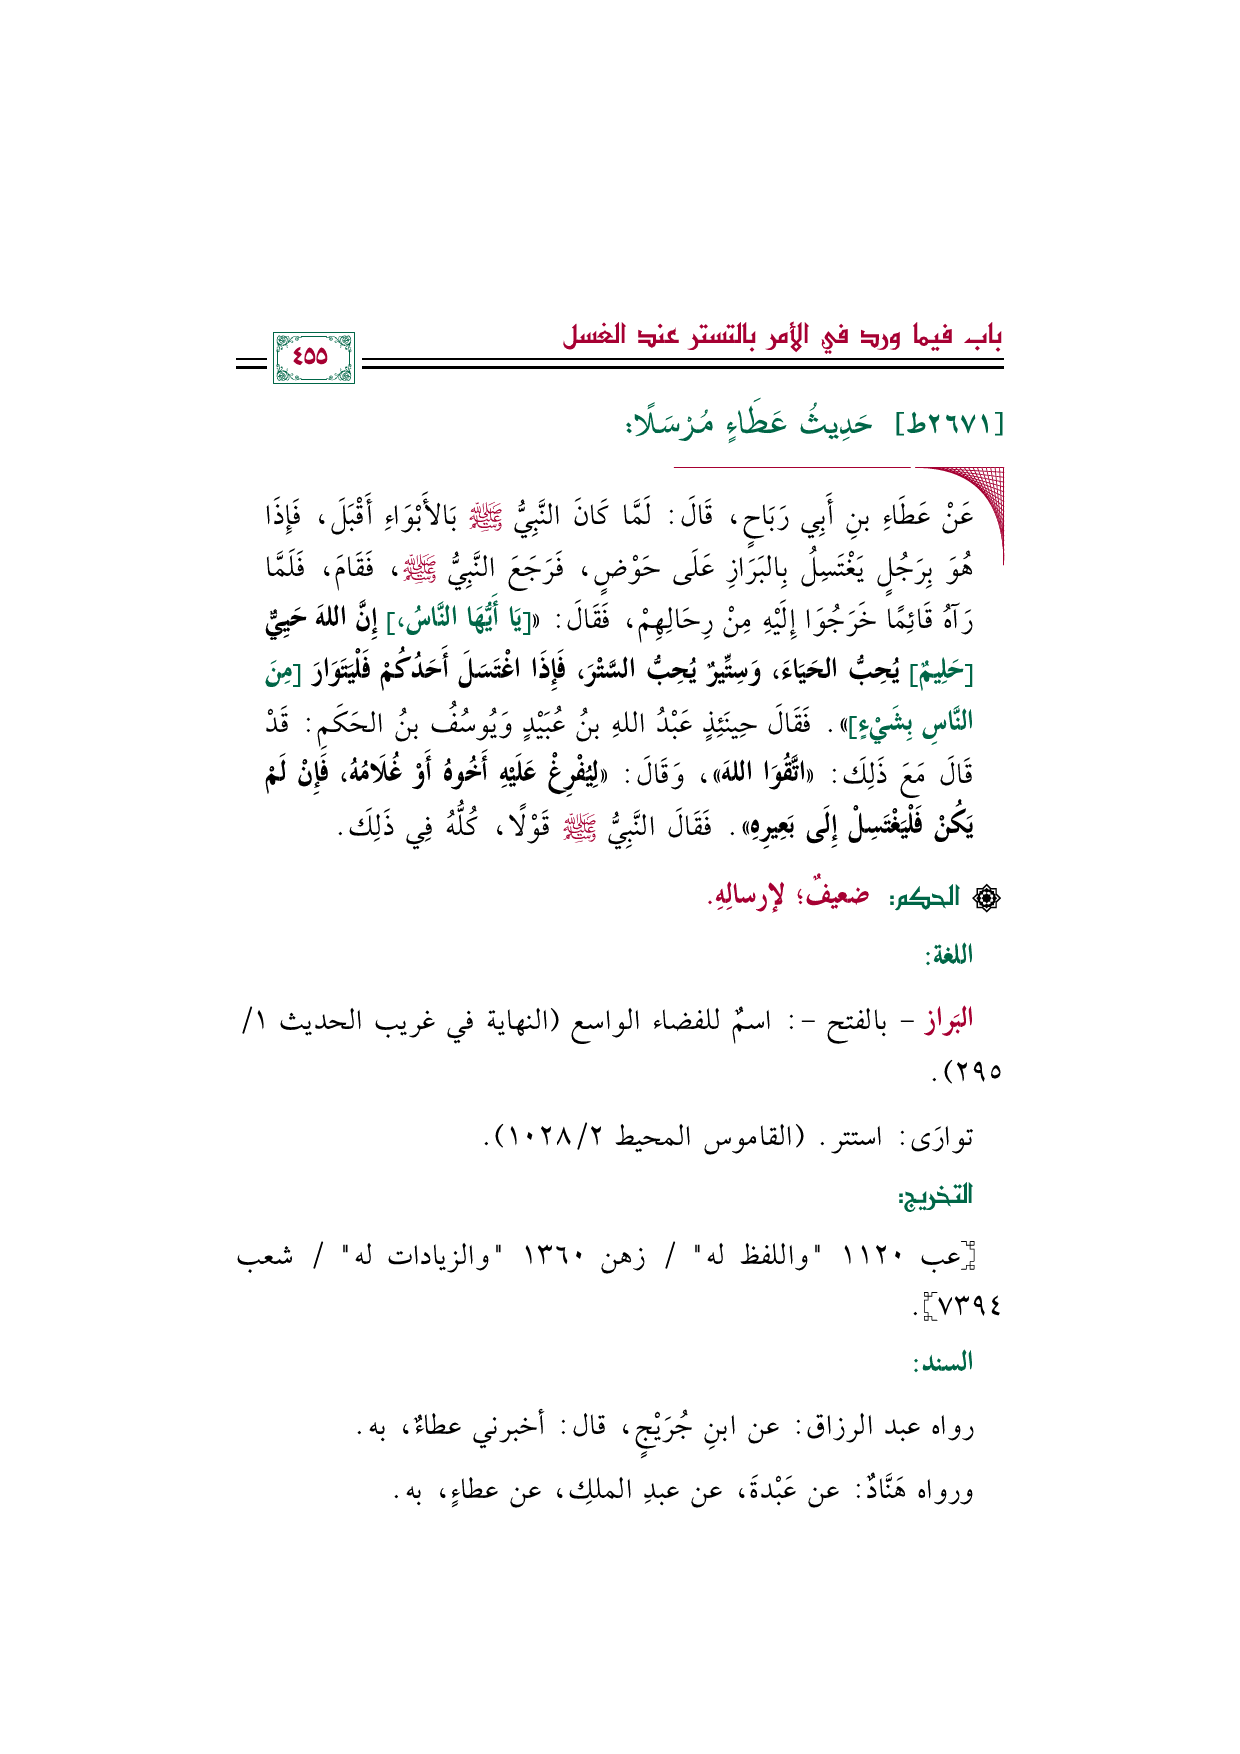 باب فيما ورد في الأمر بالتستر عند الغسل
٤٥٥
[٢٦٧١ط] حَدِيثُ عَطَاءٍ مُرْسَلًا:
عَنْ عَطَاءِ بنِ أَبِي رَبَاحٍ، قَالَ: لَمَّا كَانَ النَّبِيُّ ﷺ بَالأَبْوَاءِ أَقْبَلَ، فَإِذَا
هُوَ بِرَجُلٍ يَغْتَسِلُ بِالبَرَازِ عَلَى حَوْضٍ، فَرَجَعَ النَّبِيُّ ﷺ، فَقَامَ، فَلَمَّا
رَآهُ قَائِمًا خَرَجُوَا إِلَيْهِ مِنْ رِحَالِهِمْ، فَقَالَ: «[يَا أَيُّهَا النَّاسُ،] إِنَّ اللهَ حَيِيٌّ
[حَلِيمٌ] يُحِبُّ الحَيَاءَ، وَسِتِّيرٌ يُحِبُّ السَّتْرَ، فَإِذَا اغْتَسَلَ أَحَدُكُمْ فَلْيَتَوَارَ [مِنَ
النَّاسِ بِشَيْءٍ]». فَقَالَ حِينَئِذٍ عَبْدُ اللهِ بنُ عُبَيْدٍ وَيُوسُفُ بنُ الحَكَمِ: قَدْ
قَالَ مَعَ ذَلِكَ: «اتَّقُوَا اللهَ»، وَقَالَ: «لِيُفْرِغْ عَلَيْهِ أَخُوهُ أَوْ غُلَامُهُ، فَإِنْ لَمْ
يَكُنْ فَلْيَغْتَسِلْ إِلَى بَعِيرِهِ». فَقَالَ النَّبِيُّ ﷺ قَوْلًا، كُلُّهُ فِي ذَلِكَ.
الحكم: ضعيفٌ؛ لإرسالِهِ.
اللغة:
البَراز – بالفتح –: اسمٌ للفضاء الواسع (النهاية في غريب الحديث ١/
٢٩٥).
توارَى: استتر. (القاموس المحيط ٢/١٠٢٨).
التخريج:
[عب ١١٢٠ "واللفظ له" / زهن ١٣٦٠ "والزيادات له" / شعب
٧٣٩٤].
السند:
رواه عبد الرزاق: عن ابنِ جُرَيْجٍ، قال: أخبرني عطاءٌ، به.
ورواه هَنَّادٌ: عن عَبْدةَ، عن عبدِ الملكِ، عن عطاءٍ، به.